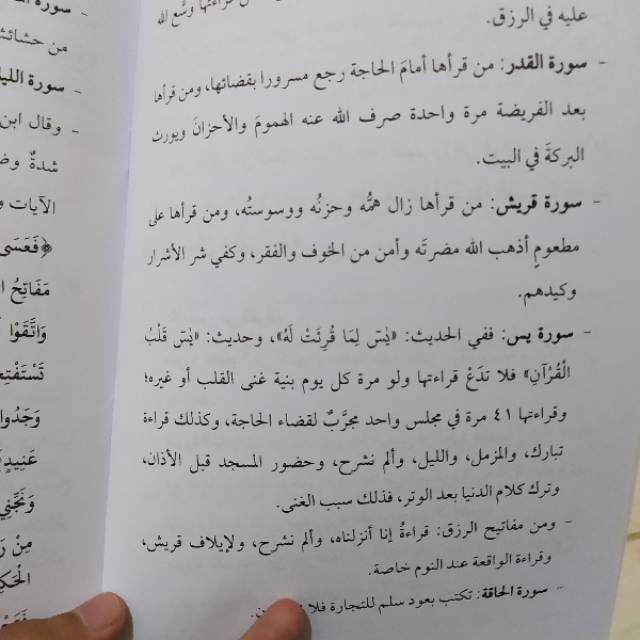 عليه في الرزق.
- سورة القدر: من قرأها أمامَ الحاجة رجع مسرورا بقضائها، ومن قرأها
بعد الفريضة مرة واحدة صرف الله عنه الهمومَ والأحزانَ ويورث
البركةَ في البيت.
- سورة قريش: من قرأها زال همُّه وحزنُه ووسوستُه، ومن قرأها على
مطعومٍ أذهب الله مضرتَه وأمن من الخوف والفقر، وكفي شر الأشرار
وكيدهم.
- سورة يس: ففي الحديث: «يٰسٓ لِمَا قُرِئَتْ لَهُ»، وحديث: «يٰسٓ قَلْبُ
الْقُرْآنِ» فلا تدَعْ قراءتها ولو مرة كل يوم بنية غنى القلب أو غيره؛
وقراءتها ٤١ مرة في مجلس واحد مجرَّبٌ لقضاء الحاجة، وكذلك قراءة
تبارك، والمزمل، والليل، وألم نشرح، وحضور المسجد قبل الأذان،
وترك كلام الدنيا بعد الوتر، فذلك سبب الغنى.
- ومن مفاتيح الرزق: قراءةُ إنا أنزلناه، وألم نشرح، ولإيلاف قريش،
وقراءة الواقعة عند النوم خاصة.
- سورة الحاقة: تكتب بعود سلم للتجارة فلا
من
- سورة الليل
- وقال ابن
شدةٌ
الآيات
﴿فَعَسَى
مَفَاتِحُ
وَاتَّقَوْا
تَسْتَفْتِحُ
وَجَدُوا
عَنِيدٍ
وَنَجِّنِي
مِنْ